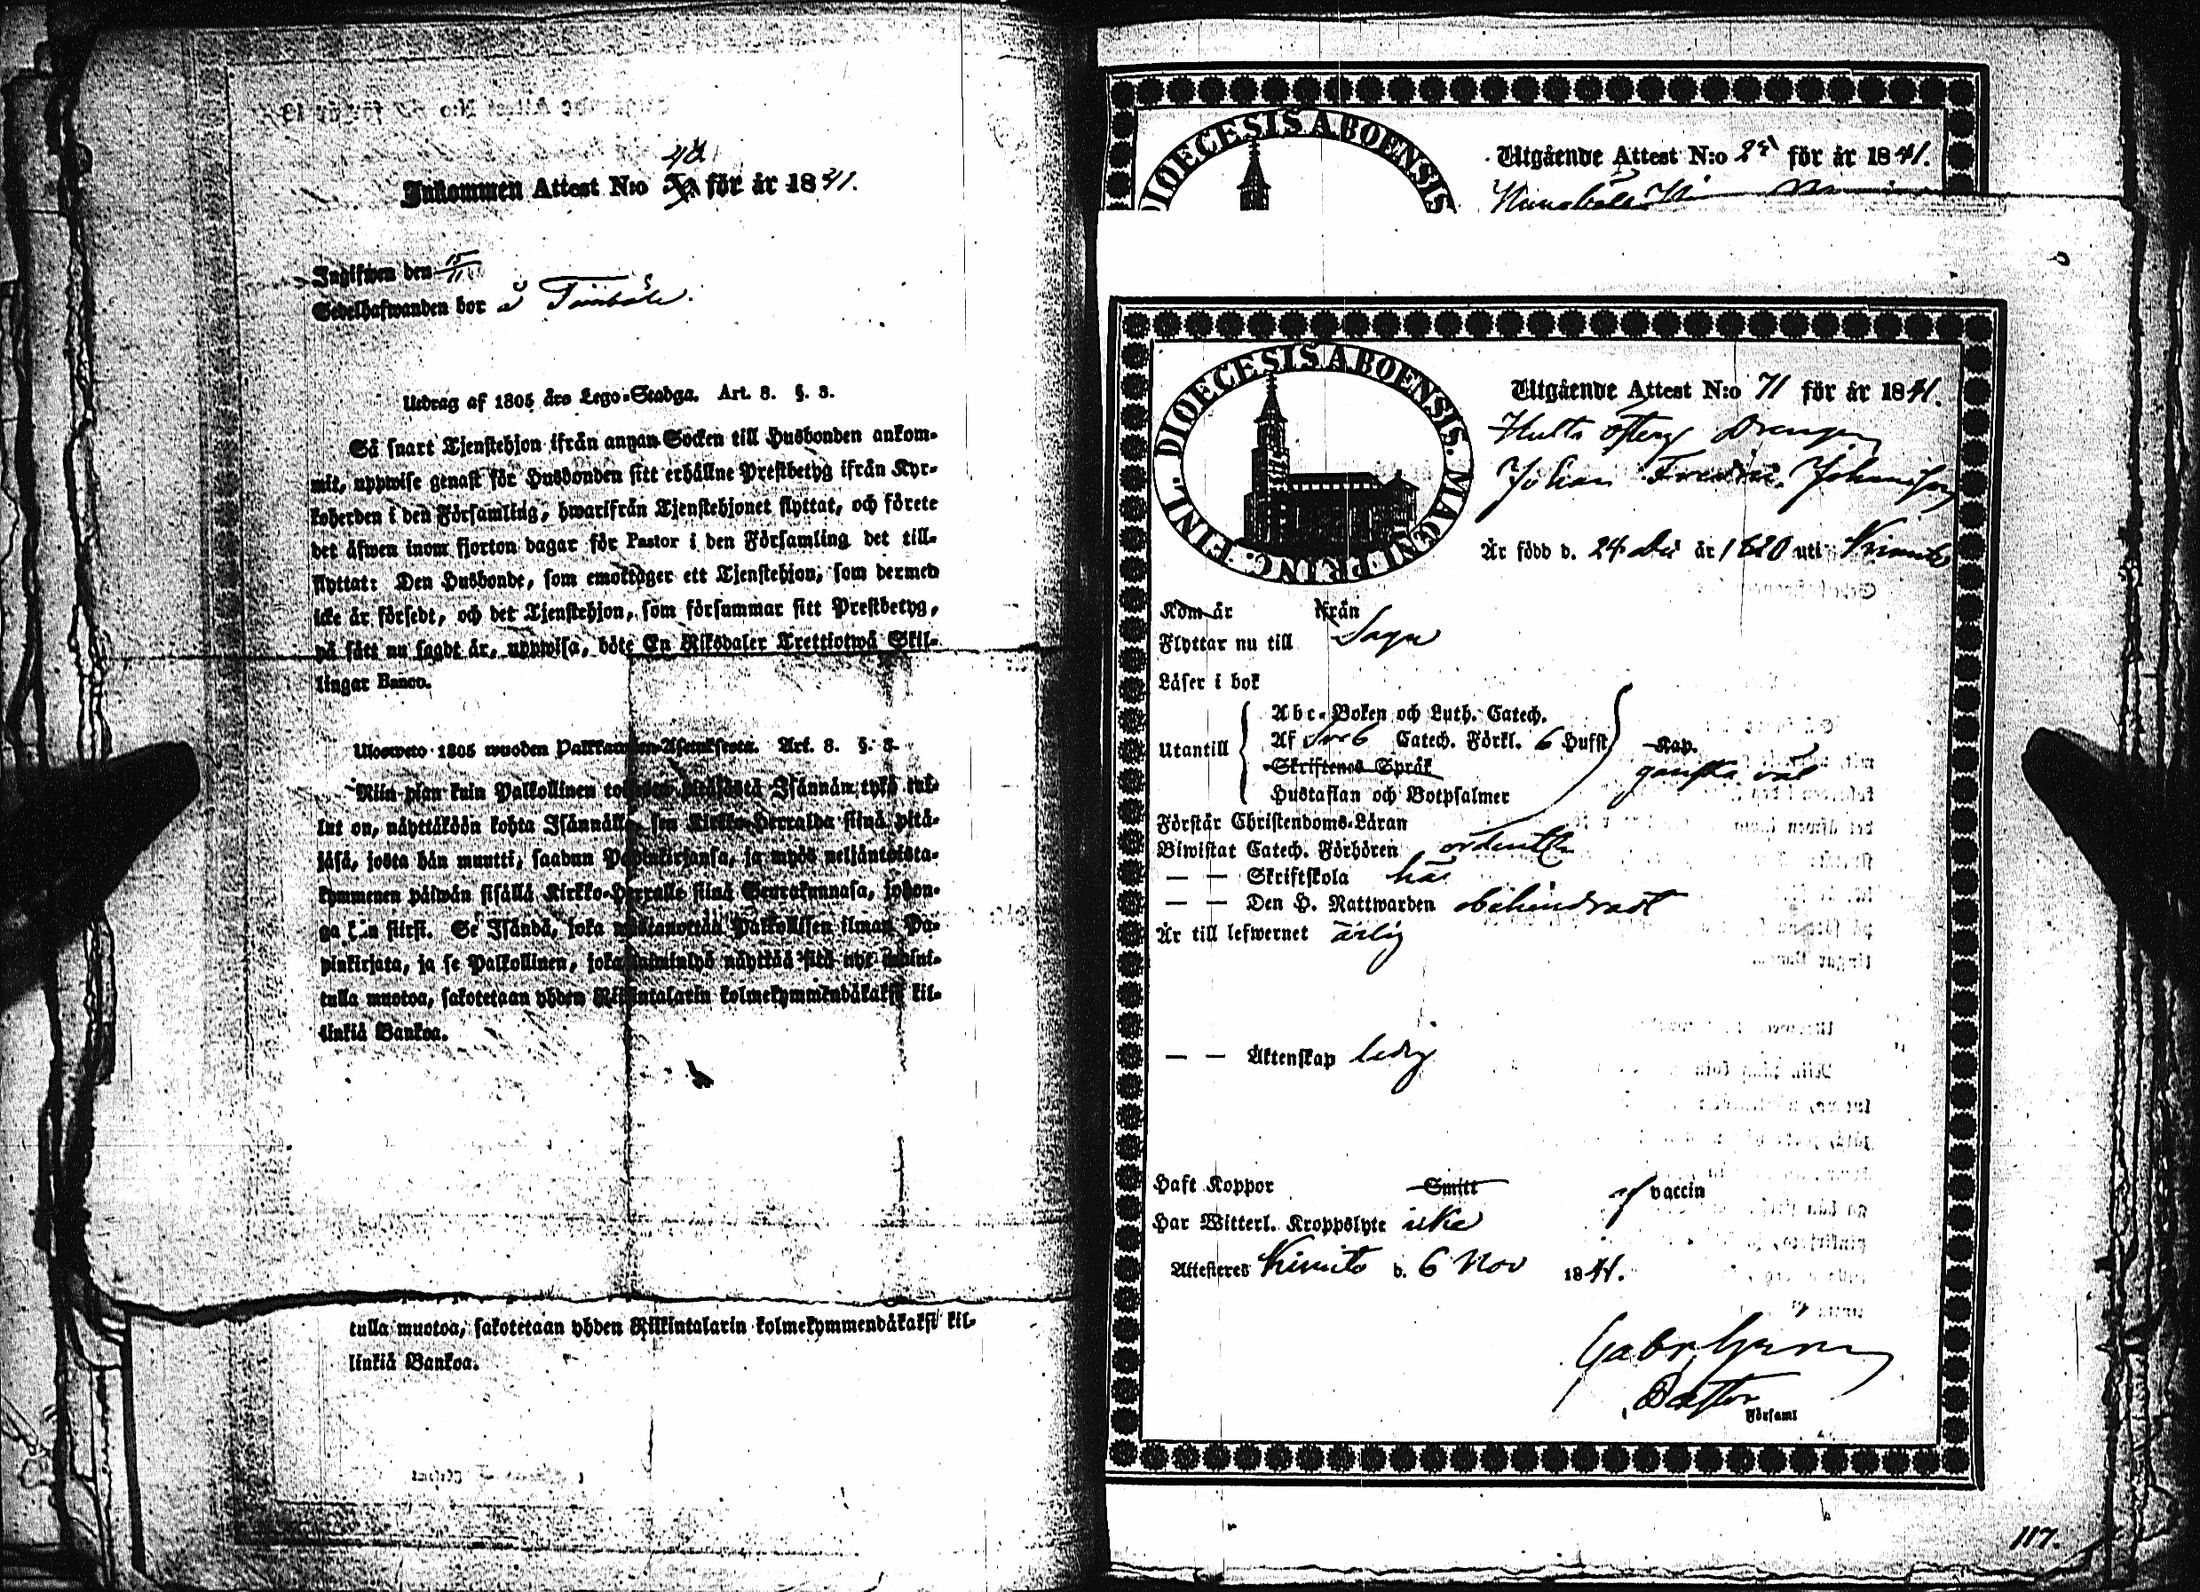 Inkommen Attest N:o för år 1841.
Ingifwen den 15/11
Sedelhafwanden bor i
Utdrag af 1805 års Lego-Stadga. Art. 8. §. 3.
Så snart Tjenstehjon ifrån annan Socken till Husbonden ankom-
mit, uppwise genast för Husbonden sitt erhållne Prestbetyg ifrån Kyr-
koherden i den Församling, hwarifrån Tjenstehjonet flyttat, och förete
det äfwen inom fjorton dagar för Pastor i den Församling det till-
flyttat: Den Husbonde, som emottager ett Tjenstehjon, som dermed
icke är försedt, och det Tjenstehjon, som försummar sitt Prestbetyg,
på sätt nu sagdt är, uppwisa, böte En Riksdaler Trettiotwå Skil-
lingar Banco.
Ulosweto 1805 wuoden Palkkawäen-Asetuksesta. Art. 8. §. 3.
Niin pian kuin Palkollinen toisesta pitäjästä Isännän tykö tul-
lut on, näyttäköön kohta Isännälle sen Kirkko-Herralda siinä pitä-
jäsä, josta hän muutti, saadun Papinkirjansa, ja myös neljäntoista-
kymmenen päiwän sisällä Kirkko-Herralle siinä Seurakunnasa, johon-
ga hän siirsi. Se Isändä, joka wastanottaa Palkollisen ilman Pa-
pinkirjata, ja se Palkollinen, joka laiminlyö näyttää sitä nyt
tulla muotoa, sakotetaan yhden Riikintalarin kolmekymmendäkaksi kil-
linkiä Bankoa.
tulla muotoa, sakotetaan yhden Riikintalarin kolmekymmendäkaksi kil-
linkiä Bankoa.
DIOECESIS ABOENSIS
Utgående Attest N:o för år 1841.
FINL. DIOECESIS ABOENSIS. MAGNI PRINC.
Utgående Attest N:o 71 för år 1841.
Hults Drengen
Johan Johansson
Är född d. 24 Dec år 1820 uti Kimito
Kom år ifrån
Flyttar nu till Sagu
Läser i bok
Abc-Boken och Luth. Catech.
Utantill Af Sveb Catech. Förkl. 6 Hufst Kap.
Skriftenes Språk ganska väl
Hustaflan och Botpsalmer
Förstår Christendoms-Läran
Biwistat Catech. Förhören ordentl
— — Skriftskola här
— — Den H. Nattwarden obehindradt
Är till lefwernet ärlig
— — Äktenskap ledig
Haft Koppor Smitt af vaccin
Har Witterl. Kroppslyte icke
Attesteras Kimito d. 6 Nov 1841.
Pastor
Församl
117.